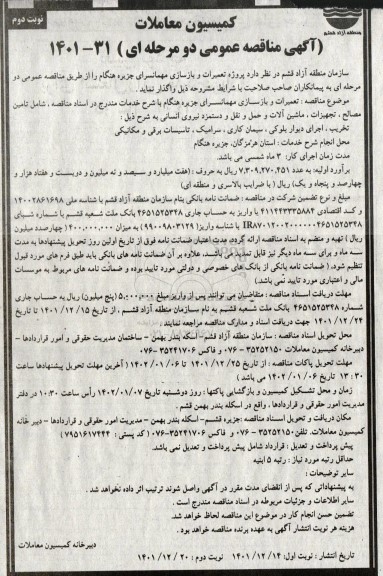 نوبت دوم
منطقه آزاد قشم
کمیسیون معاملات
(آگهی مناقصه عمومی دو مرحله ای) ۳۱-۱۴۰۱
سازمان منطقه آزاد قشم در نظر دارد پروژه تعمیرات و بازسازی مهمانسرای جزیره هنگام را از طریق مناقصه عمومی دو
مرحله ای به پیمانکاران صاحب صلاحیت با شرایط مشروحه ذیل واگذار نماید.
موضوع مناقصه: تعمیرات و بازسازی مهمانسرای جزیره هنگام با شرح خدمات مندرج در اسناد مناقصه، شامل تامین
مصالح، تجهیزات، ماشین آلات و حمل و نقل و دستمزد نیروی انسانی به شرح ذیل:
تخریب، اجرای دیوار بلوکی، سیمان کاری، سرامیک، تاسیسات برقی و مکانیکی
محل انجام شرح خدمات: استان هرمزگان، جزیره هنگام
مدت زمان اجرای کار: ۳ ماه شمسی می باشد.
برآورد اولیه: به عدد ۷,۳۰۹,۲۷۰,۴۵۱ ریال به حروف (هفت میلیارد و سیصد و نه میلیون و دویست و هفتاد هزار و
چهارصد و پنجاه و یک) ریال (با ضرایب بالاسری و منطقه ای)
مبلغ و نوع تضمین شرکت در مناقصه: ضمانت نامه بانکی بنام سازمان منطقه آزاد قشم با شناسه ملی ۱۴۰۰۲۸۶۱۶۹۸
و کد اقتصادی ۴۱۱۴۳۳۳۵۸۸۴ یا واریز به حساب جاری ۴۶۵۱۵۲۵۳۴۸ بانک ملت شعبه قشم با شماره شبای
IR۸۷۰۱۲۰۰۲۰۰۰۰۰۴۶۵۱۵۲۵۳۴۸ با شناسه واریز (۹۹۰۰۹۸۰۳۱۲۹) به میزان ۴۰۰,۰۰۰,۰۰۰ (چهارصد میلیون
ریال) تهیه و منضم به اسناد مناقصه ارائه گردد. مدت اعتبار ضمانت نامه فوق از تاریخ اولین روز تحویل پیشنهادها به مدت
سه ماه و برای سه ماه دیگر نیز قابل تمدید می باشد. علاوه بر آن ضمانت نامه های بانکی باید طبق فرم های مورد قبول
تنظیم شود. (ضمانت نامه بانکی از بانک های خصوصی و دولتی مورد تایید بوده و ضمانت نامه های مربوط به موسسات
مالی و اعتباری مورد تایید نمی باشد)
مهلت دریافت اسناد مناقصه: متقاضیان می توانند پس از واریز مبلغ ۵,۰۰۰,۰۰۰ (پنج میلیون) ریال به حساب جاری
شماره ۴۶۵۱۵۲۵۳۴۸ بانک ملت شعبه قشم به نام سازمان منطقه آزاد قشم، از تاریخ ۱۴۰۱/۱۲/۱۵ تا تاریخ
۱۴۰۱/۱۲/۲۴ جهت دریافت اسناد و مدارک مناقصه مراجعه نمایند.
محل تحویل اسناد مناقصه: سازمان منطقه آزاد قشم- اسکله بندر بهمن - ساختمان مدیریت حقوقی و امور قراردادها -
دبیرخانه کمیسیون معاملات ۳۵۲۵۲۱۵۰-۰۷۶ و فاکس ۳۵۲۴۱۷۰۶-۰۷۶
مهلت تحویل پاکات مناقصه: از تاریخ ۱۴۰۱/۱۲/۲۵ تا ۱۴۰۲/۰۱/۰۶ (آخرین مهلت تحویل پیشنهادها ساعت
۱۳:۳۰ تاریخ ۱۴۰۲/۰۱/۰۶ می باشد)
زمان و محل تشکیل کمیسیون و بازگشایی پاکتها: روز دوشنبه تاریخ ۱۴۰۲/۰۱/۰۷ رأس ساعت ۱۰:۳۰ در دفتر
مدیریت امور حقوقی و قراردادها، واقع در اسکله بندر بهمن قشم.
مکان دریافت و تحویل اسناد مناقصه: جزیره قشم- اسکله بندر بهمن - مدیریت امور حقوقی و قراردادها - دبیر خانه
کمیسیون معاملات. تلفن ۳۵۲۵۲۱۵۰-۰۷۶ و فاکس ۳۵۲۴۱۷۰۶-۰۷۶ (کد پستی: ۷۹۵۱۶۱۷۴۴۴)
پیش پرداخت و تعدیل: قرارداد شامل پیش پرداخت و تعدیل نمی باشد.
حداقل رتبه مورد نیاز: رتبه ۵ ابنیه
سایر توضیحات:
به پیشنهاداتی که پس از انقضای مدت مقرر در آگهی واصل شوند ترتیب اثر داده نخواهد شد.
سایر اطلاعات و جزئیات مربوطه در اسناد مناقصه مندرج است.
تضمین حسن انجام کار در موضوع این مناقصه لحاظ خواهد شد.
هزینه هر نوبت انتشار آگهی به عهده برنده مناقصه خواهد بود.
دبیرخانه کمیسیون معاملات
تاریخ انتشار: نوبت اول: ۱۴۰۱/۱۲/۱۴ نوبت دوم: ۱۴۰۱/۱۲/۲۰